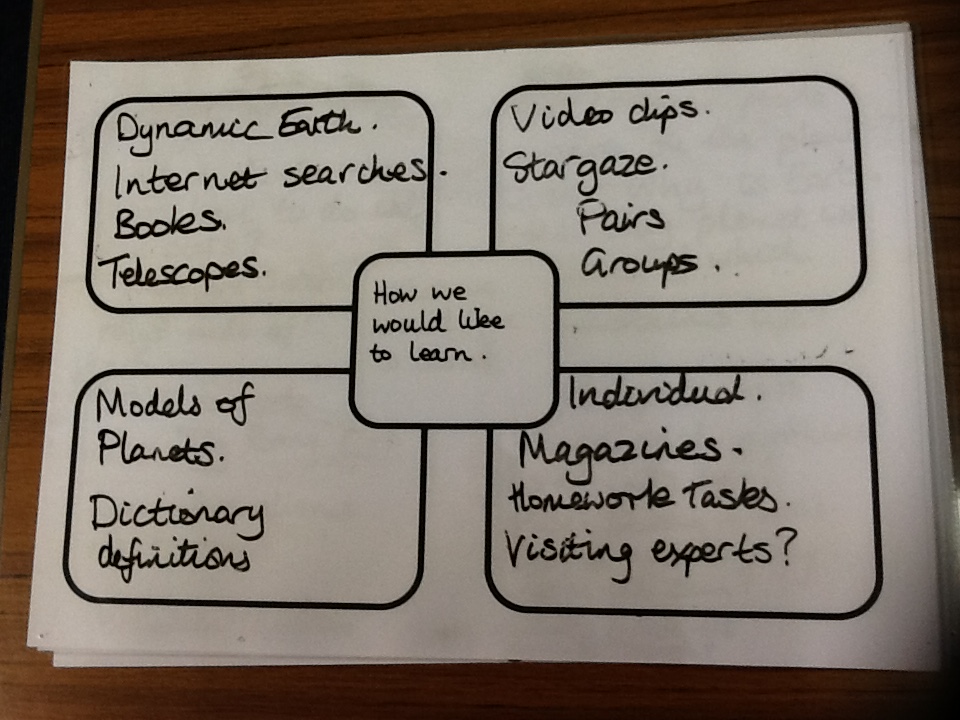 Dynamic Earth.
Internet searches.
Books.
Telescopes.
Video clips.
Stargaze.
Pairs
Groups.
How we
would like
to learn.
Models of
Planets.
Dictionary
definitions
Individual.
Magazines.
Homework Tasks.
Visiting experts?